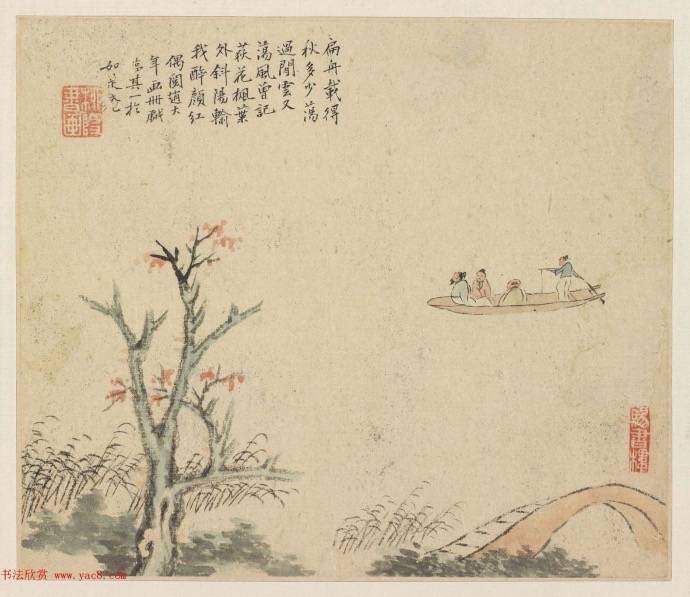 扁舟載得
秋多少蕩
過閒雲又
蕩風曾記
荻花楓葉
外斜陽輸
我醉顏紅
偶閱趙大
年画冊戲
其一於
書樓
书法欣赏 www.yac8.com